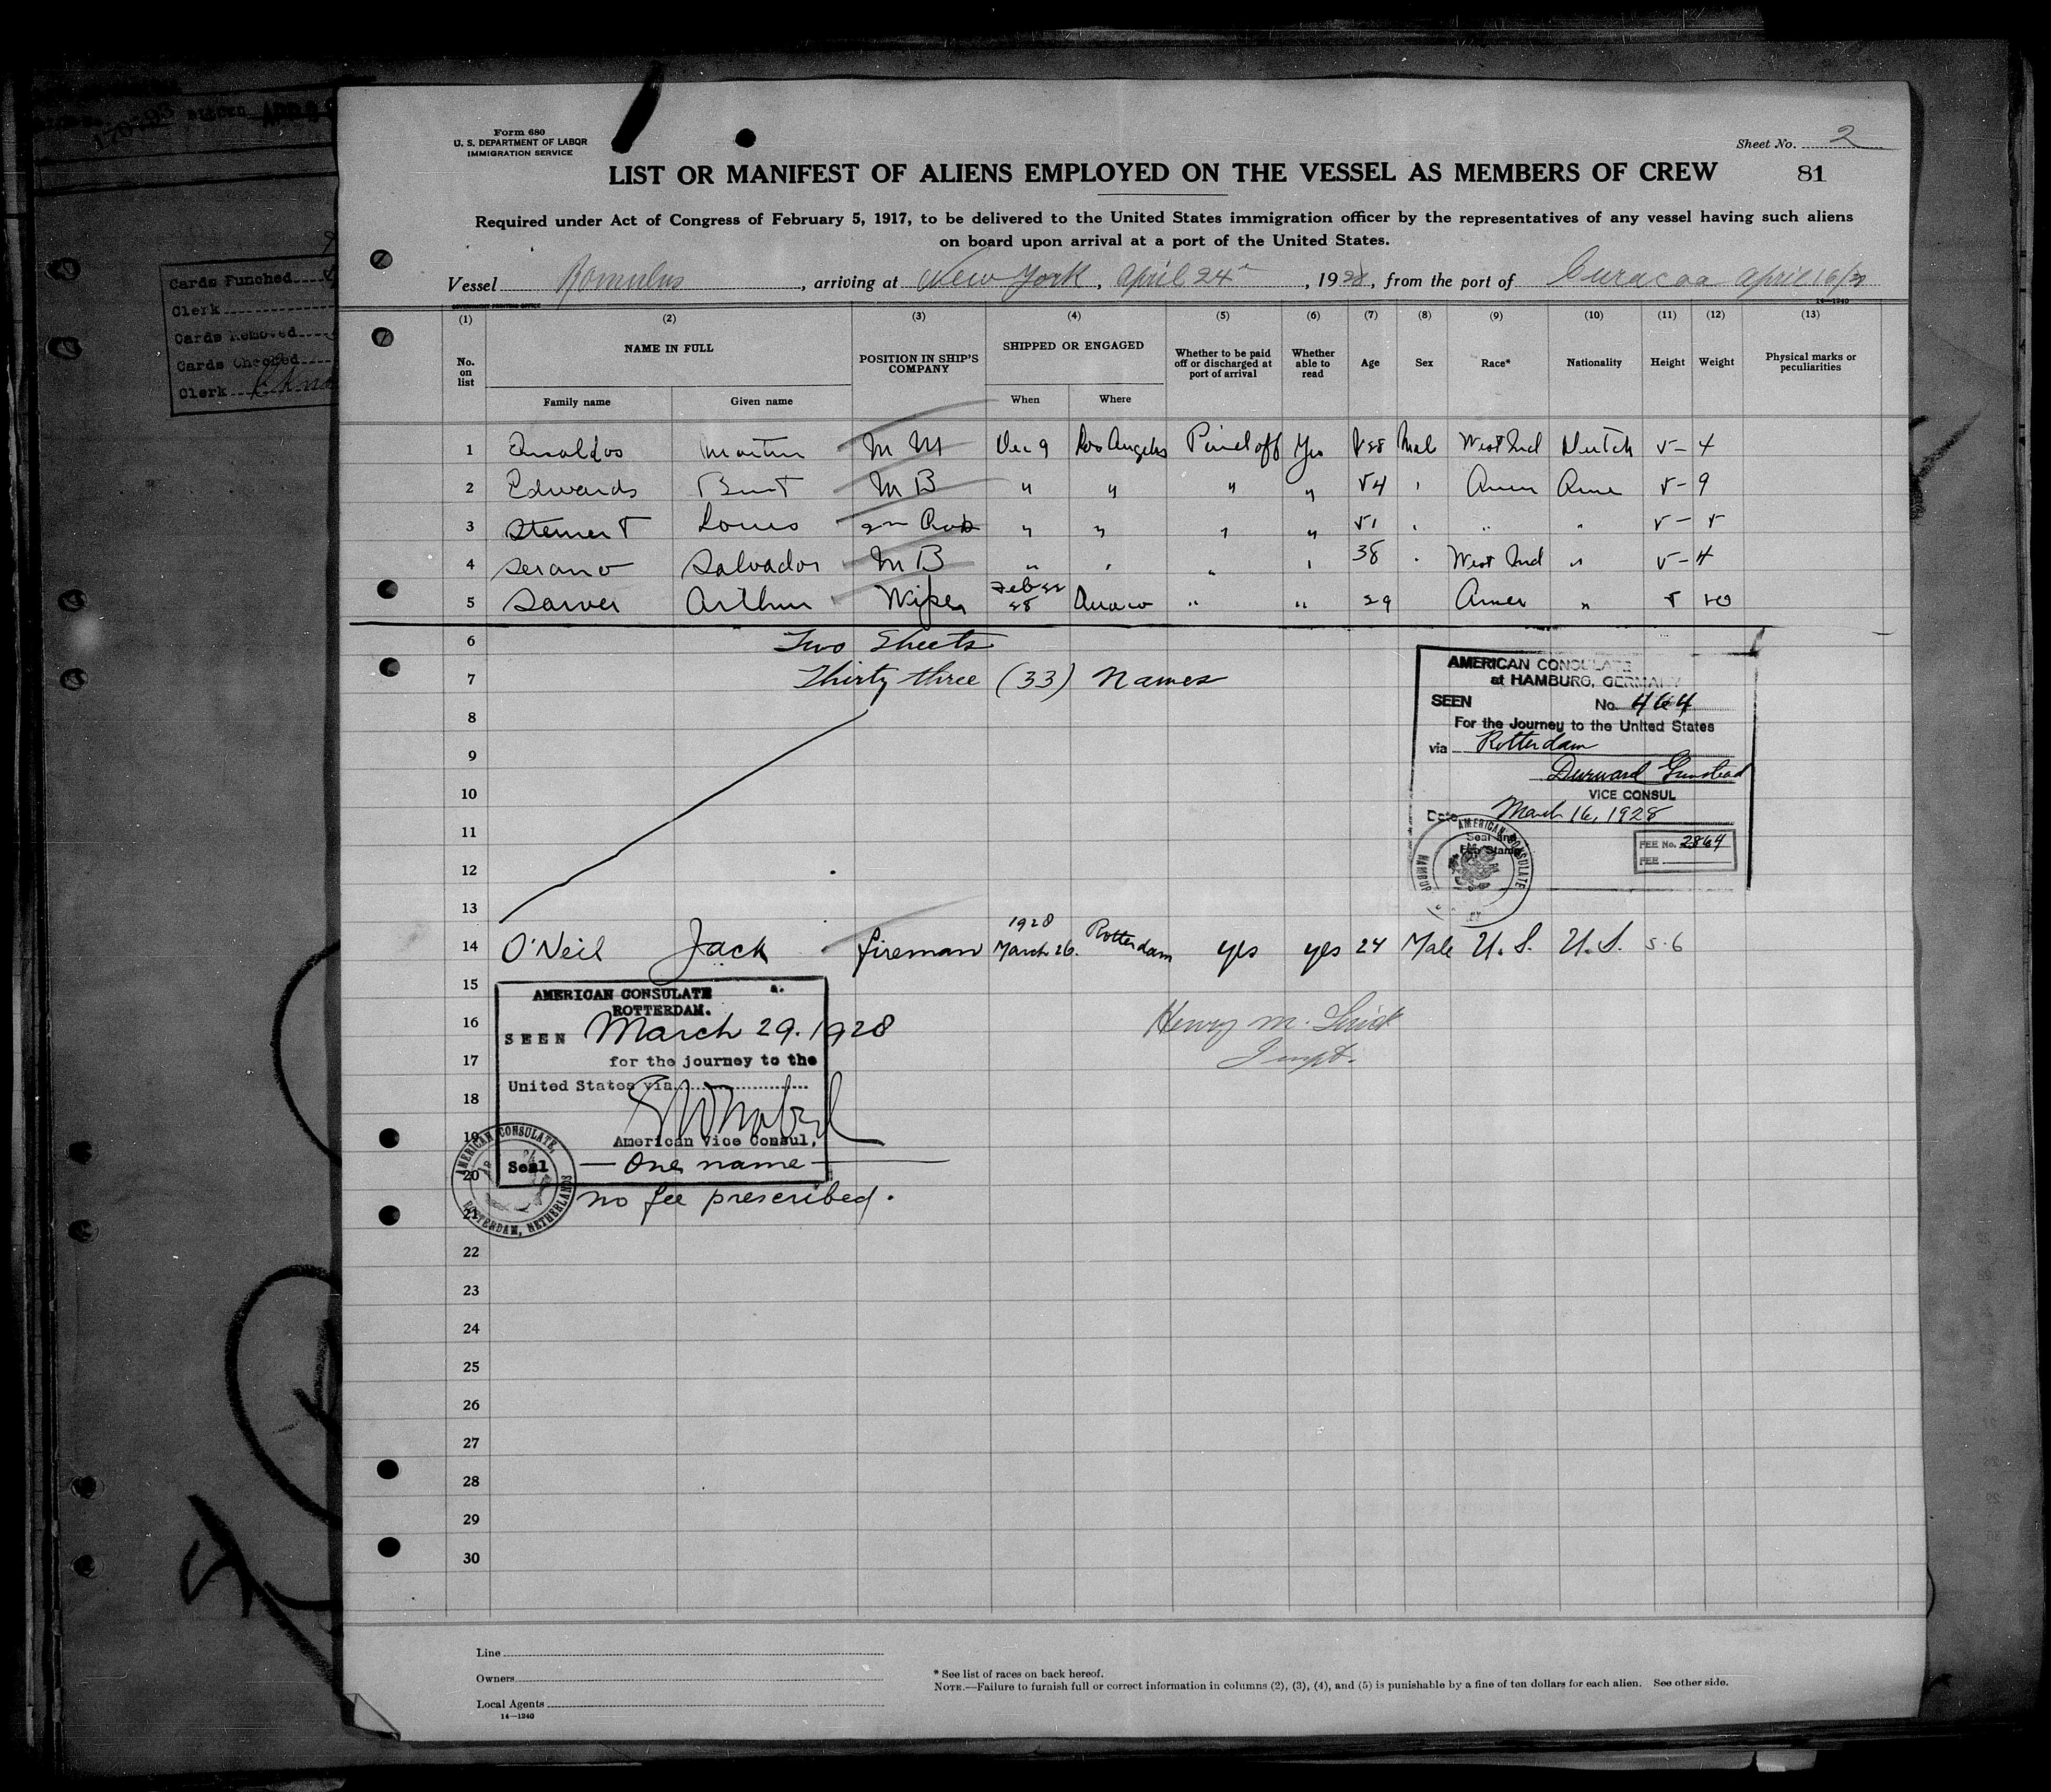 Form 680
U. S. DEPARTMENT OF LABOR
IMMIGRATION SERVICE
Sheet No. 2
LIST OR MANIFEST OF ALIENS EMPLOYED ON THE VESSEL AS MEMBERS OF CREW
81
Required under Act of Congress of February 5, 1917, to be delivered to the United States immigration officer by the representatives of any vessel having such aliens
on board upon arrival at a port of the United States.
Vessel Romulus, arriving at New York, April 24, 1928, from the port of Curacao April 16
GOVERNMENT PRINTING OFFICE
14—1240
(1) (2) (3) (4) (5) (6) (7) (8) (9) (10) (11) (12) (13)
No. on list
NAME IN FULL
Family name
Given name
POSITION IN SHIP'S COMPANY
SHIPPED OR ENGAGED
When
Where
Whether to be paid off or discharged at port of arrival
Whether able to read
Age
Sex
Race*
Nationality
Height
Weight
Physical marks or peculiarities
1 Martin M M Dec 9 Los Angeles Paid off Yes Male West Ind Dutch 5-4
2 Edwards Burt M B " " " " 54 Amer Ame 5-9
3 Steinert Louis 2nd " " " " 51 " " 5-5
4 Serano Salvador M B " " " " 38 West Ind " 5-4
5 Sarver Arthur Wiper Feb 22 28 " " 29 Amer " 5 10
6 Two Sheets
7 Thirty three (33) Names
8
9
10
11
12
13
AMERICAN CONSULATE
at HAMBURG, GERMANY
SEEN No. 464
For the Journey to the United States
via Rotterdam
Durward Grinstead
VICE CONSUL
Date March 16, 1928
Seal and
Fee Stamp
AMERICAN CONSULATE HAMBURG
FEE No. 2864
FEE
14 O'Neil Jack fireman 1928 March 26. Rotterdam yes yes 24 Male U. S. U. S. 5.6
15
16
17
18
19
20
21
AMERICAN CONSULATE
ROTTERDAM.
SEEN March 29. 1928
for the journey to the
United States via
American Vice Consul,
Seal — One name —
no fee prescribed.
AMERICAN CONSULATE, ROTTERDAM, NETHERLANDS
Henry M.
Inspt.
22
23
24
25
26
27
28
29
30
Line
Owners
Local Agents
14—1240
* See list of races on back hereof.
NOTE.—Failure to furnish full or correct information in columns (2), (3), (4), and (5) is punishable by a fine of ten dollars for each alien. See other side.
Cards Punched
Clerk
Cards Removed
Cards Checked
Clerk